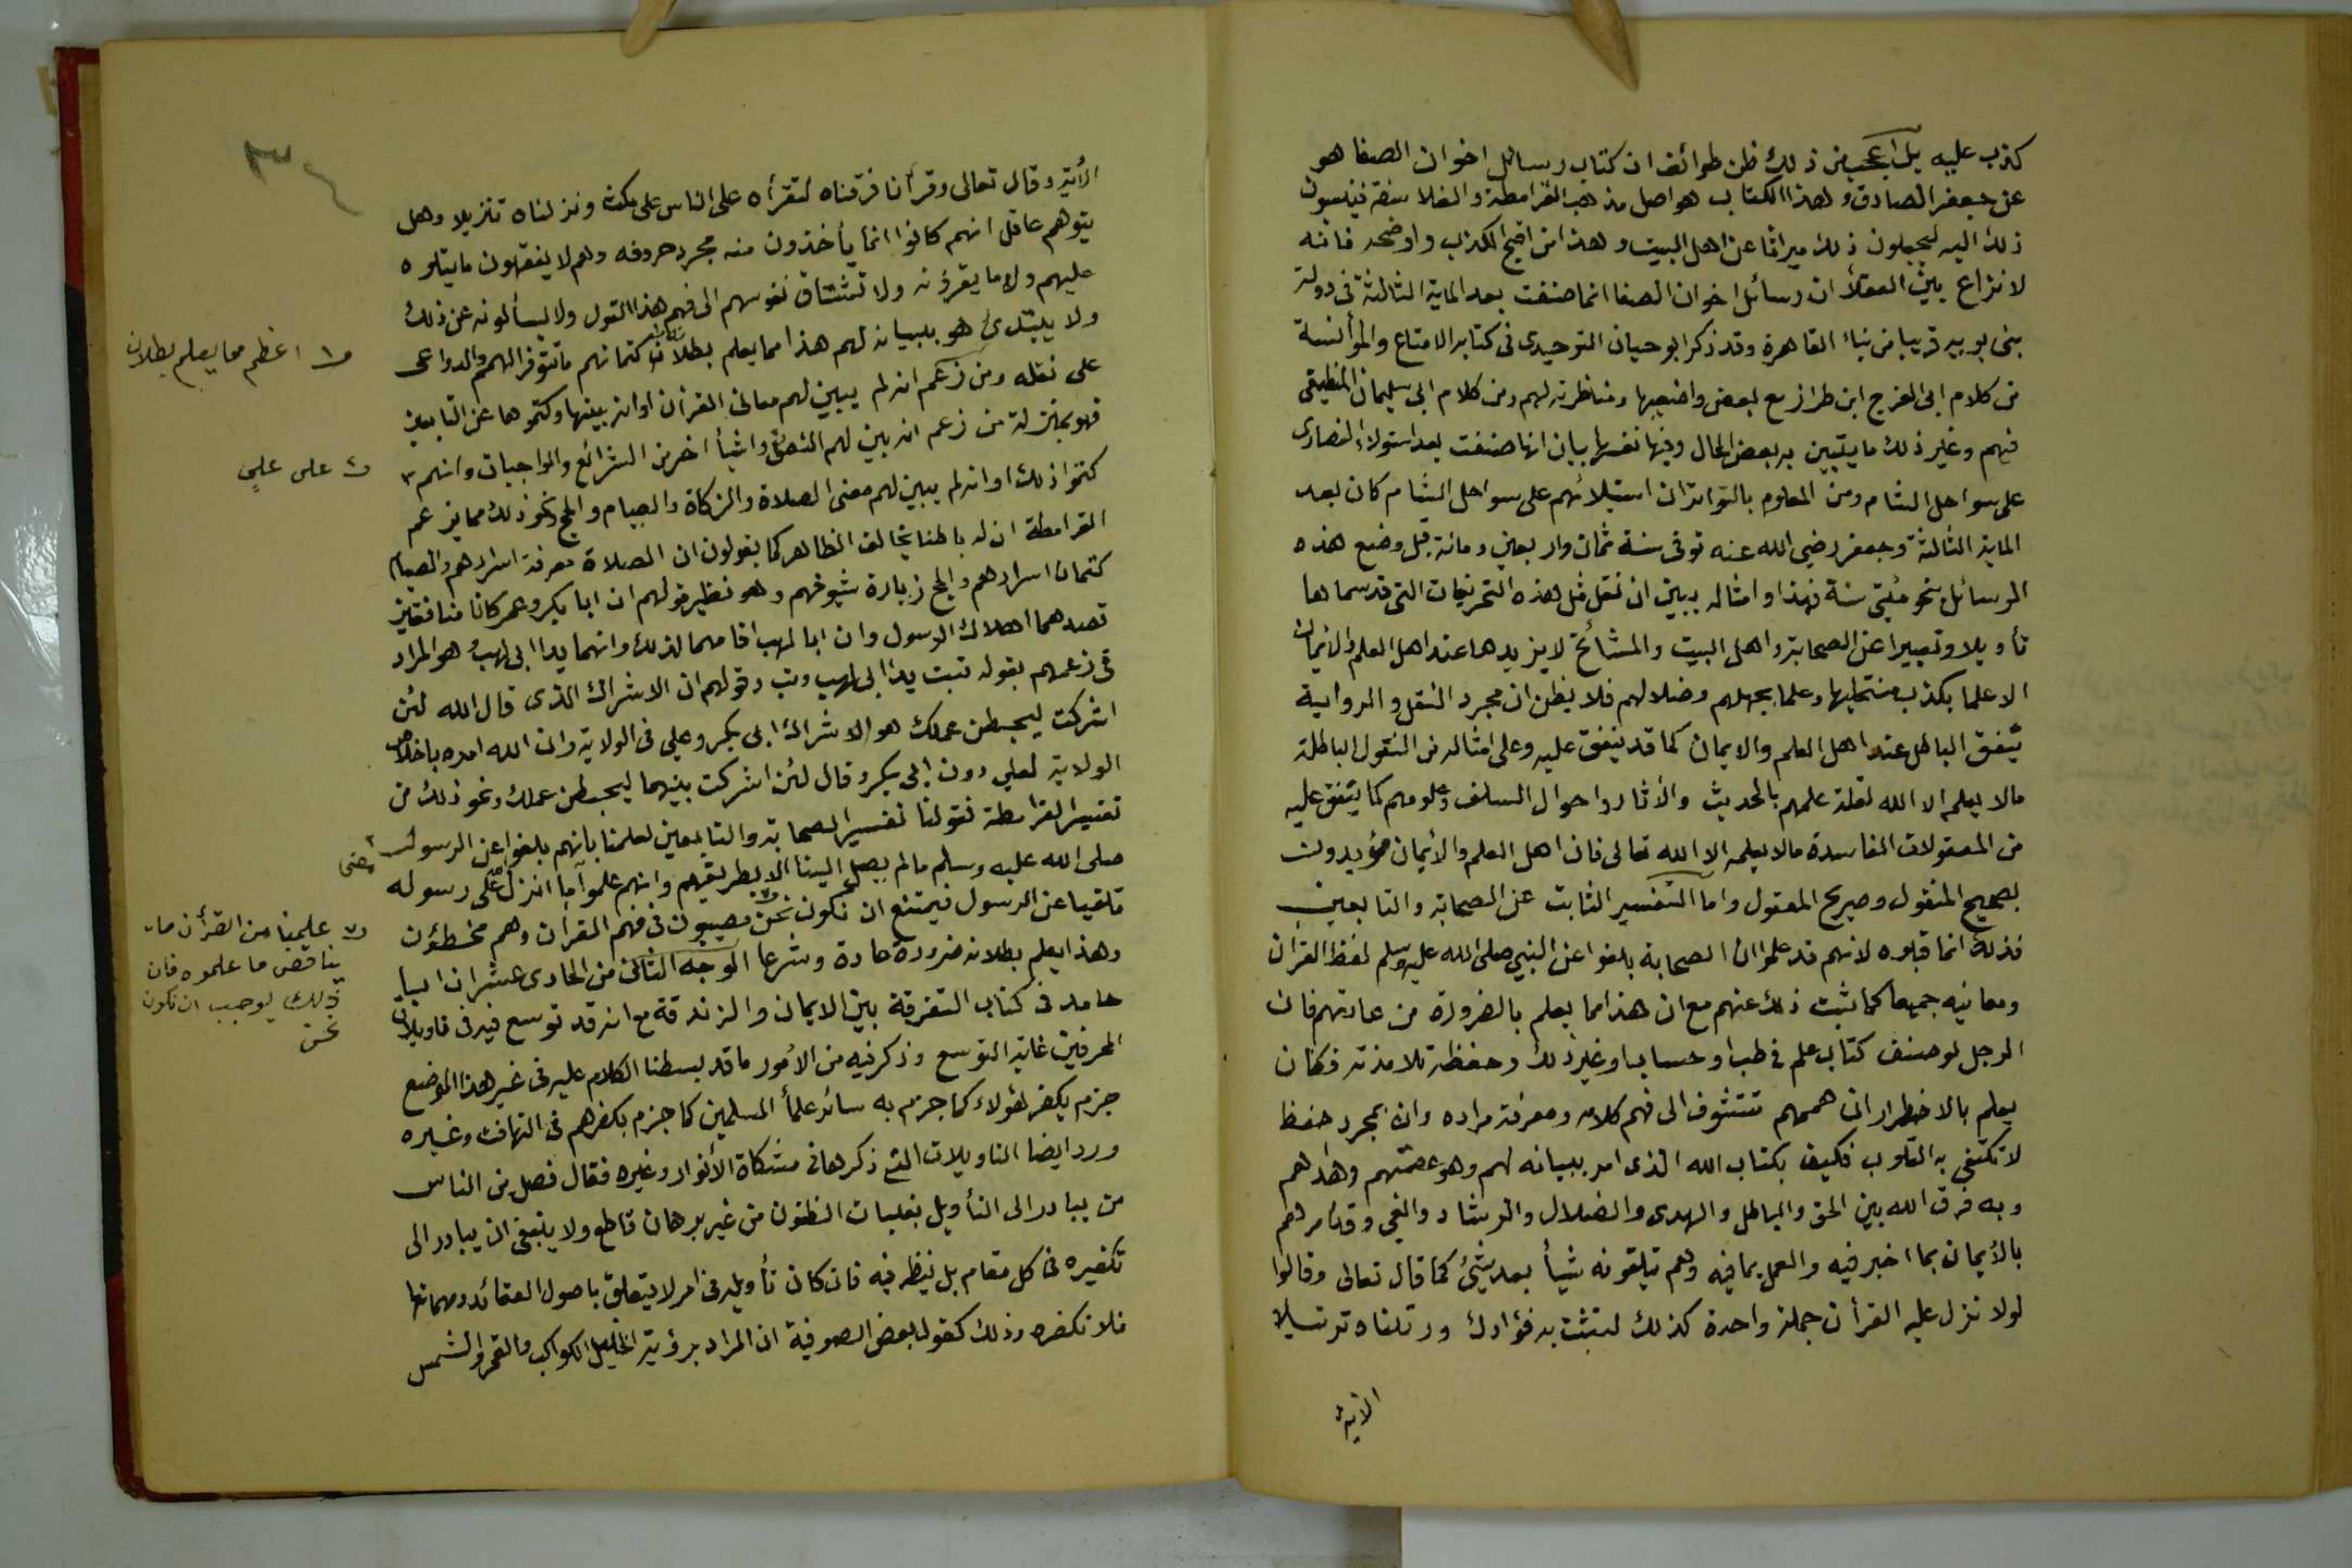 كذب عليه بل اعجب من ذلك ظن طوائف ان كتاب رسائل اخوان الصفا هو
عن جعفر الصادق وهذا الكتاب هو اصل مذهب القرامطة والفلاسفة فينسبون
ذلك اليه ليجعلون ذلك ميراثا عن اهل البيت وهذا من اقبح الكذب واوضحه فانه
لا نزاع بين العقلأ ان رسائل اخوان الصفا انما صنفت بعد الماية الثالثة فى دولة
بنى بويه قريبا من بناء القاهرة وقد ذكر ابو حيان التوحيدى فى كتابه الامتاع والمؤانسة
من كلام ابى الفرج ابن طراز مع بعض واضعيها ومناظرته لهم ومن كلام ابى سليمان المنطيقى
فيهم وغير ذلك ما يتبين به بعض الحال وفيها نفسها بيان انها صنفت بعد استولاء النصارى
على سواحل الشام ومن المعلوم بالتواتر ان استيلائهم على سواحل الشام كان بعد
الماية الثالثة وجعفر رضى الله عنه توفى سنة ثمان واربعين ومائة قبل وضع هذه
الرسائل بنحو مئتى سنة فهذا وامثاله يبين ان نقل مثل هذه التحريفات التى قد سماها
تأويلا وتعبيرا عن الصحابة واهل البيت والمشائخ لا يزيدها عند اهل العلم والايمان
الا علما بكذب منتحليها وعلما بجهلهم وضلالهم فلا يظن ان مجرد النقل والرواية
ينفق الباطل عند اهل العلم والايمان كما قد ينفق عليه وعلى امثاله من النقول الباطلة
مالا يعلمه الا الله لقلة علمهم بالحديث والأثار واحوال السلف وعلومهم كما ينفق عليه
من المعقولات الفاسدة مالا يعلمه الا الله تعالى فان اهل العلم والأيمان مؤيدون
بصحيح المنقول وصريح المعقول واما التفسير الثابت عن الصحابة والتابعين
فذلك انما قبلوه لانهم قد علموا ان الصحابة بلغوا عن النبى صلى الله عليه وسلم لفظ القرأن
ومعانيه جميعا كما ثبت ذلك عنهم مع ان هذا مما يعلم بالضرورة من عادتهم فان
الرجل لو صنف كتاب علم فى طب او حساب او غير ذلك وحفظه تلامذته فكان
يعلم بالاضطرار ان هممهم تتشوف الى فهم كلامه ومعرفة مراده وان بمجرد حفظ
لا تكتفى به القلوب فكيف بكتاب الله الذى امر ببيانه لهم وهو عصمتهم وهداهم
وبه فرق الله بين الحق والباطل والهدى والضلال والرشاد والغى وقد امرهم
بالأيمان بما اخبر فيه والعمل بما فيه وهم يتلقونه شيأ بعد شيئ كما قال تعالى وقالوا
لولا نزل عليه القرأن جملة واحدة كذلك لنثبت به فؤادك ورتلناه ترتيلا
الأية
الأية وقال تعالى وقرأنا فرقناه لتقرأه على الناس على مكث ونزلناه تنزيلا وهل
يتوهم عاقل انهم كانوا انما يأخذون منه مجرد حروفه وهم لا يفقهون ما يتلوه
عليهم ولا ما يقرؤنه ولا تشتاق نفوسهم الى فهم هذا القول ولا يسألونه عن ذلك
ولا يبتدئ هو ببيانه لهم هذا مما يعلم بطلانه كتمانهم ما تتوفر الهمم والدواعى
على نقله ومن زعم انه لم يبين لهم معانى القرأن او انه بينها وكتموها عن التابعين
فهو بمنزلة من زعم انه بين لهم النص واشيأ اخر من الشرائع والواجبات وانهم
كتموا ذلك او انه لم يبين لهم معنى الصلاة والزكاة والصيام والحج ونحو ذلك مما يزعم
القرامطة ان له باطنا يخالف الظاهر كما يقولون ان الصلاة معرفة اسرارهم والصيام
كتمان اسرارهم والحج زيارة شيوخهم وهو نظير قولهم ان ابا بكر وعمر كانا منافقين
قصدهما اهلاك الرسول وان ابا لهب اقامهما لذلك وانهما يدا ابى لهب هو المراد
فى زعمهم بقوله تبت يدا ابى لهب وتب وقولهم ان الاشراك الذى قال الله لئن
اشركت ليحبطن عملك هو الاشراك ابى بكر وعلى فى الولاية وان الله امره باخلاص
الولاية لعلى دون ابى بكر وقال لئن اشركت بينهما ليحبطن عملك ونحو ذلك من
تفسير القرامطة فقولنا تفسير الصحابة والتابعين لعلمنا بانهم بلغوا عن الرسول
صلى الله عليه وسلم مالم يصل الينا الا بطريقهم وانهم علموا ما انزل على رسوله
تلقيا عن الرسول فيمتنع ان نكون نحن مصيبون فى فهم القرأن وهم مخطؤن
وهذا يعلم بطلانه ضرورة عادة وشرعا الوجه الثانى من الحادى عشر ان ابا
حامد فى كتاب التفرقة بين الايمان والزندقة مع انه قد توسع فيه فى تاويلات
المحرفين غاية التوسع وذكر فيه من الأمور ما قد بسطنا الكلام عليه فى غير هذا الموضع
جزم بكفر هؤلاء كما جزم به سائر علمأ المسلمين كما جزم بكفرهم فى التهافت وغيره
ورد ايضا التاويلات التى ذكرها فى مشكاة الأنوار وغيره فقال فصل من الناس
من يبادر الى التأويل بغلبات الظنون من غير برهان قاطع ولا ينبغى ان يبادر الى
تكفيره فى كل مقام بل ينظر فيه فان كان تأويله فى امر لا يتعلق باصول العقائد ومهماتها
فلا نكفره وذلك كقول بعض الصوفية ان المراد برؤية الخليل الكواكب والقمر والشمس
اعظم مما يعلم بطلان
على على
معنى
علمنا من القرأن ما
يناقض ما علموه فان
ذلك يوجب ان نكون
نحن